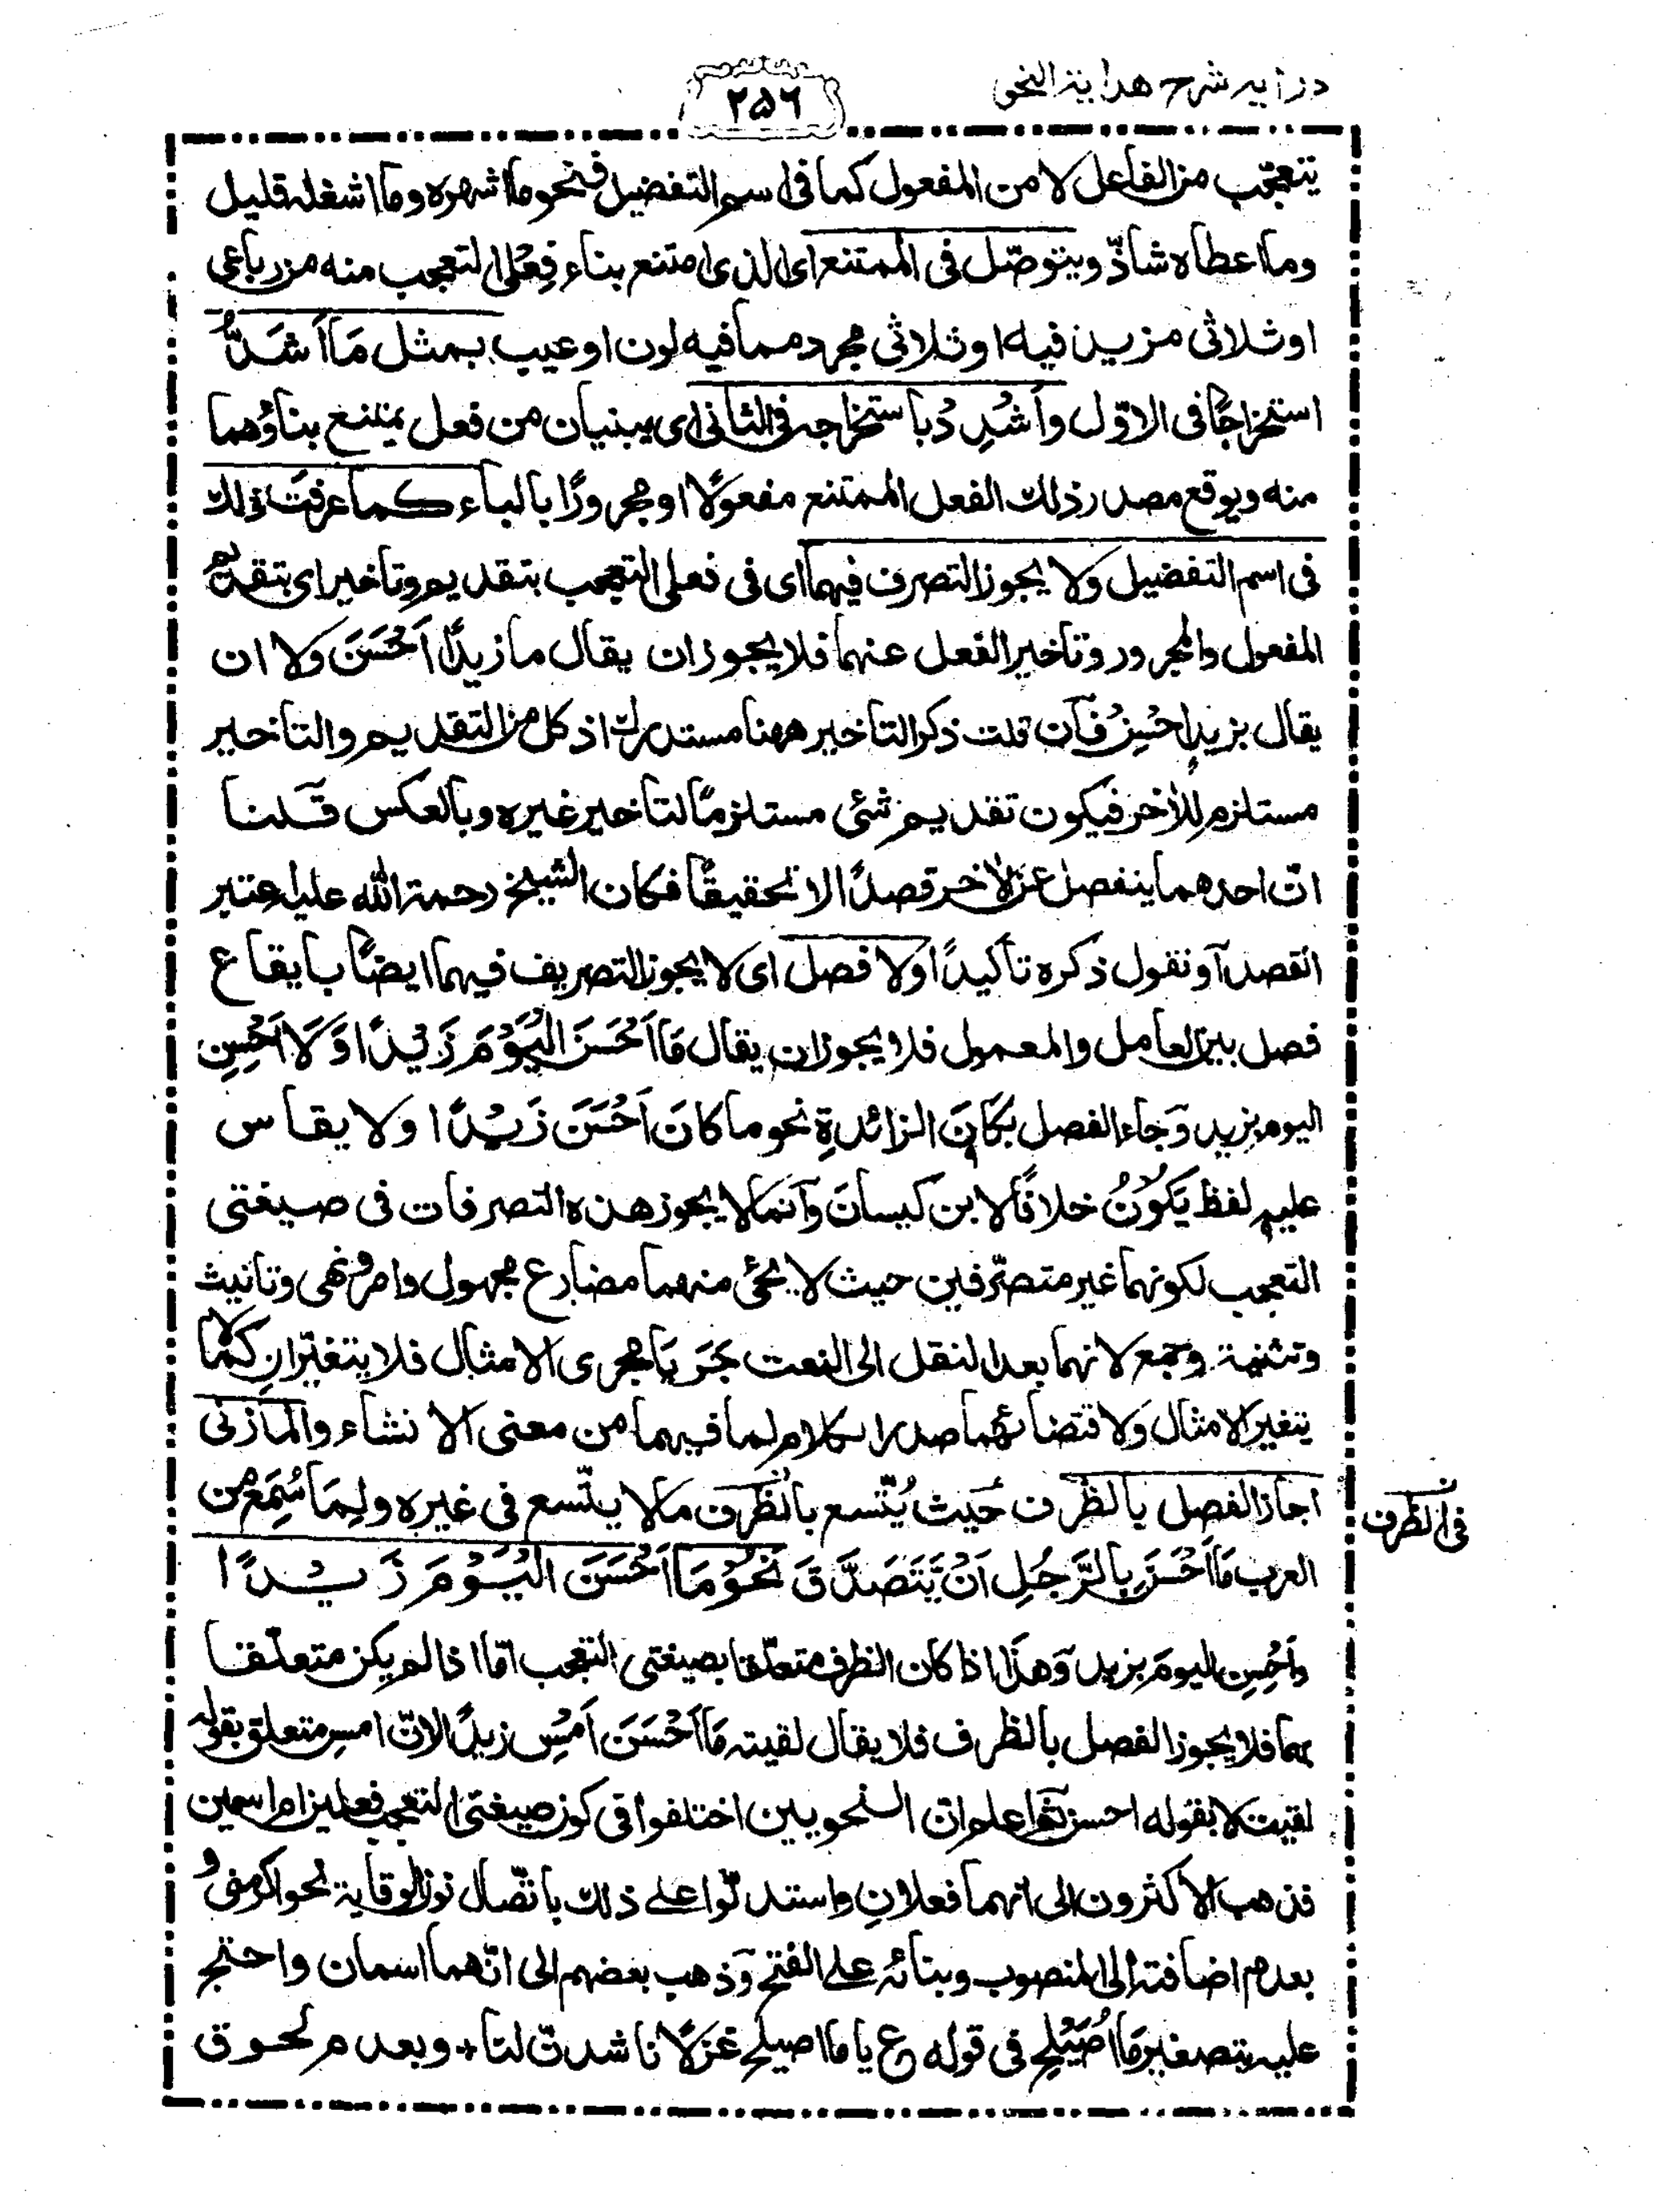 درايه شرح هداية النحو
٢٥٦
يتعجّب من الفاعل لا من المفعول كما فى اسم التفضيل فنحو ما اشهره وما اشغله قليل
وما اعطاه شاذّ ويتوصّل فى الممتنع اى الذى امتنع بناء فِعْلى التعجب منه من رباعى
او ثلاثى مزيد فيه او ثلاثى مجرد مما فيه لون او عيب بمثل مَا اَشَدُّ
استخراجًا فى الاوّل وأَشْدِدْ باستخراجه فى الثانى اى يبنيان من فعل يمتنع بناؤهما
منه ويوقع مصدر ذلك الفعل الممتنع مفعولًا او مجرورًا بالباء كما عرفتَ ذلك
فى اسم التفضيل ولا يجوز التصرف فيهما اى فى فعلى التعجب بتقديم وتاخير اى بتقديم
المفعول والمجرور وتاخير الفعل عنهما فلا يجوز ان يقال ما زيدًا اَحْسَنَ ولا ان
يقال بزيدٍ احْسِنْ فآن قلت ذكر التاخير ههنا مستدرك اذ كل من التقديم والتاخير
مستلزم للأخر فيكون تقديم شئى مستلزمًا لتاخير غيره وبالعكس قلنا
انّ احدهما ينفصل عن الأخر قصدًا لا تحقيقًا فكان الشيخ رحمة الله عليه اعتبر
القصد آو نقول ذكره تأكيدًا ولا فصل اى لا يجوز التصريف فيهما ايضًا بايقاع
فصل بين العامل والمعمول فلا يجوز ان يقال مَا اَحْسَنَ الْيَوْمَ زَيْدًا وَلَا اَحْسِن
اليوم بزيد وَجاء الفصل بكَانَ الزائدةِ نحو ما كانَ اَحْسَنَ زَيْدًا ولا يقاس
عليه لفظ يَكُوْنُ خلافًا لابن كيسانَ وآنما لا يجوز هذه التصرفات فى صيغتى
التعجب لكونهما غير متصرّفين حيث لا يجئى منهما مضارع مجهول وامر ونهى وتانيث
وتثنية وجمع لانهما بعد النقل الى النعت جَرَيَا مجرى الامثال فلا يتغيّرانِ كما لا
يتغير الامثال ولاقتضائهما صدر الكلام لما فيهما من معنى الانشاء والمازنى
اجاز الفصل بالظرف حيث يُتّسع بالظرف ما لا يتّسع فى غيره ولِمَا سُمِعَ من
العرب مَا اَحْسَنَ بِالرَّجُلِ اَنْ يَّتَصَدَّقَ نَحْوُ مَا اَحْسَنَ الْيَوْمَ زَيْدًا
واَحْسِنِ اليومَ بزيد وَهذا اذا كان الظرف متعلّقا بصيغتى التعجب امّا اذا لم يكن متعلّقا
بهما فلا يجوز الفصل بالظرف فلا يقال لقيته مَا اَحْسَنَ اَمْسِ زيدًا لانّ امس متعلق بقوله
لقيت لا بقوله احسن ثم اعلم انّ النحويين اختلفوا فى كون صيغتى التعجب فعلين ام اسمين
فذهب الاكثرون الى انهما فعلانِ واستدلّوا على ذلك باتّصال نون الوقاية نحو اكرمنى و
بعدم اضافته الى المنصوب وبنائه على الفتح وَذهب بعضهم الى انّهما اسمان واحتج
عليه بتصغير مَا اُصَيْلِح فى قوله ع يا ما اصيلح غزلًانا شدن لنا + وبعدم لحوق
فى الظرف